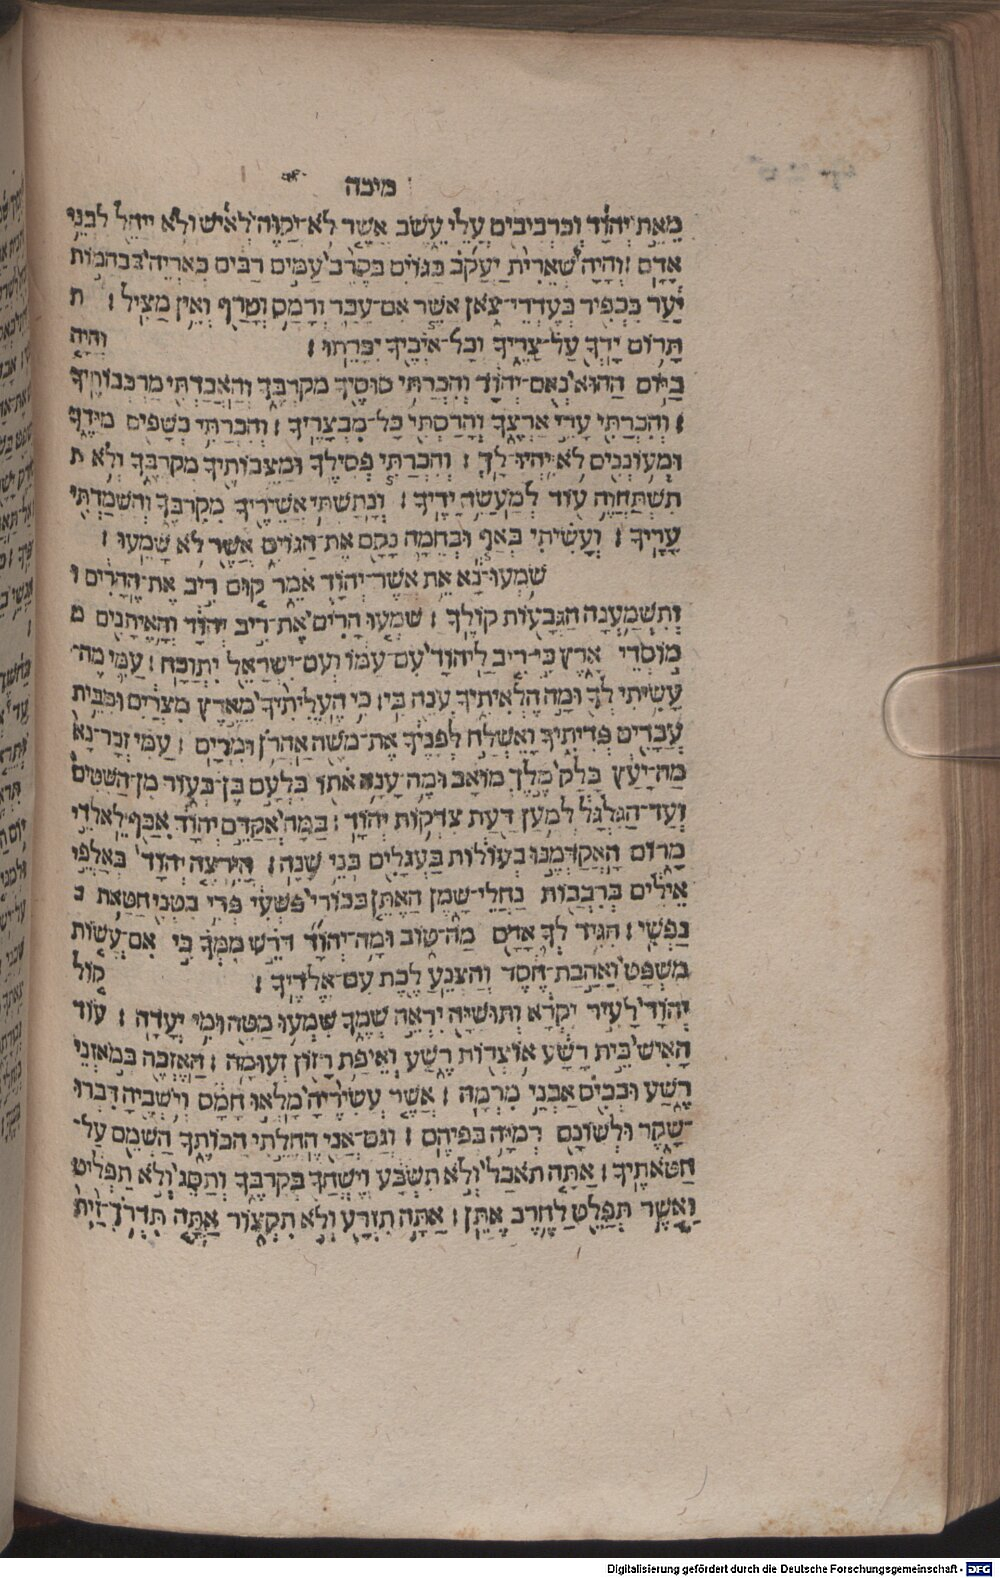 מיכה
מֵאֵת יְהוָֹד וְכִרְבִיבִים עֲלֵי עֵשֶׂב אֲשֶׁר לֹא־יְקַוֶּה לְאִישׁ וְלֹא יְיַחֵל לִבְנֵי
אָדָם ׃ וְהָיָה שְׁאֵרִית יַעֲקֹב בַּגּוֹיִם בְּקֶרֶב עַמִּים רַבִּים כְּאַרְיֵה בְּבַהֲמוֹת
יַעַר כִּכְפִיר בְּעֶדְרֵי־צֹאן אֲשֶׁר אִם־עָבַר וְרָמַס וְטָרַף וְאֵין מַצִּיל ׃ ת
תָּרוֹם יָדְךָ עַל־צָרֶיךָ וְכָל־אֹיְבֶיךָ יִכָּרֵתוּ ׃ וְהָיָה
בַיּוֹם הַהוּא נְאֻם־יְהוָֹד וְהִכְרַתִּי סוּסֶיךָ מִקִּרְבֶּךָ וְהַאֲבַדְתִּי מַרְכְּבוֹתֶיךָ
׃ וְהִכְרַתִּי עָרֵי אַרְצֶךָ וְהָרַסְתִּי כָּל־מִבְצָרֶיךָ ׃ וְהִכְרַתִּי כְשָׁפִים מִיָּדֶךָ
וּמְעוֹנְנִים לֹא יִהְיוּ־לָךְ ׃ וְהִכְרַתִּי פְסִילֶיךָ וּמַצֵּבוֹתֶיךָ מִקִּרְבֶּךָ וְלֹא ת
תִשְׁתַּחֲוֶה עוֹד לְמַעֲשֵׂה יָדֶיךָ ׃ וְנָתַשְׁתִּי אֲשֵׁירֶיךָ מִקִּרְבֶּךָ וְהִשְׁמַדְתִּי
עָרֶיךָ ׃ וְעָשִׂיתִי בְּאַף וּבְחֵמָה נָקָם אֶת־הַגּוֹיִם אֲשֶׁר לֹא שָׁמֵעוּ ׃
שִׁמְעוּ־נָא אֵת אֲשֶׁר־יְהוָֹד אֹמֵר קוּם רִיב אֶת־הֶהָרִים ו
וְתִשְׁמַעְנָה הַגְּבָעוֹת קוֹלֶךָ ׃ שִׁמְעוּ הָרִים אֶת־רִיב יְהוָֹד וְהָאֵיתָנִים מ
מוֹסְדֵי אָרֶץ כִּי־רִיב לַיהוָֹד עִם־עַמּוֹ וְעִם־יִשְׂרָאֵל יִתְוַכָּח ׃ עַמִּי מֶה־
עָשִׂיתִי לְךָ וּמָה הֶלְאֵיתִיךָ עֲנֵה בִי ׃ כִּי הֶעֱלִיתִיךָ מֵאֶרֶץ מִצְרַיִם וּמִבֵּית
עֲבָדִים פְּדִיתִיךָ וָאֶשְׁלַח לְפָנֶיךָ אֶת־מֹשֶׁה אַהֲרֹן וּמִרְיָם ׃ עַמִּי זְכָר־נָא
מַה־יָּעַץ בָּלָק מֶלֶךְ מוֹאָב וּמֶה־עָנָה אֹתוֹ בִּלְעָם בֶּן־בְּעוֹר מִן־הַשִּׁטִּים
וְעַד־הַגִּלְגָּל לְמַעַן דַּעַת צִדְקוֹת יְהוָֹד ׃ בַּמָּה אֲקַדֵּם יְהוָֹד אִכַּף לֵאלֹדֵי
מָרוֹם הַאֲקַדְּמֶנּוּ בְעוֹלוֹת בַּעֲגָלִים בְּנֵי שָׁנָה ׃ הֲיִרְצֶה יְהוָֹד בְּאַלְפֵי
אֵילִים בְּרִבְבוֹת נַחֲלֵי־שָׁמֶן הַאֶתֵּן בְּכוֹרִי פִּשְׁעִי פְּרִי בִטְנִי חַטַּאת נ
נַפְשִׁי ׃ הִגִּיד לְךָ אָדָם מַה־טּוֹב וּמָה־יְהוָֹד דּוֹרֵשׁ מִמְּךָ כִּי אִם־עֲשׂוֹת
מִשְׁפָּט וְאַהֲבַת־חֶסֶד וְהַצְנֵעַ לֶכֶת עִם־אֱלֹדֶיךָ ׃ קוֹל
יְהוָֹד לָעִיר יִקְרָא וְתוּשִׁיָּה יִרְאֶה שְׁמֶךָ שִׁמְעוּ מַטֶּה וּמִי יְעָדָהּ ׃ עוֹד
הַאִישׁ בֵּית רָשָׁע אוֹצְרוֹת רֶשַׁע וְאֵיפַת רָזוֹן זְעוּמָה ׃ הַאֶזְכֶּה בְּמֹאזְנֵי
רֶשַׁע וּבְכִיס אַבְנֵי מִרְמָה ׃ אֲשֶׁר עֲשִׁירֶיהָ מָלְאוּ חָמָס וְיֹשְׁבֶיהָ דִּבְּרוּ
־שָׁקֶר וּלְשׁוֹנָם רְמִיָּה בְּפִיהֶם ׃ וְגַם־אֲנִי הֶחֱלֵתִי הַכּוֹתֶךָ הַשְׁמֵם עַל־
חַטֹּאתֶיךָ ׃ אַתָּה תֹאכַל וְלֹא תִשְׂבָּע וְיֶשְׁחֲךָ בְּקִרְבֶּךָ וְתַסֵּג וְלֹא תַפְלִיט
וַאֲשֶׁר תְּפַלֵּט לַחֶרֶב אֶתֵּן ׃ אַתָּה תִזְרַע וְלֹא תִקְצוֹר אַתָּה תִדְרֹךְ־זַיִת
Digitalisierung gefördert durch die Deutsche Forschungsgemeinschaft - DFG